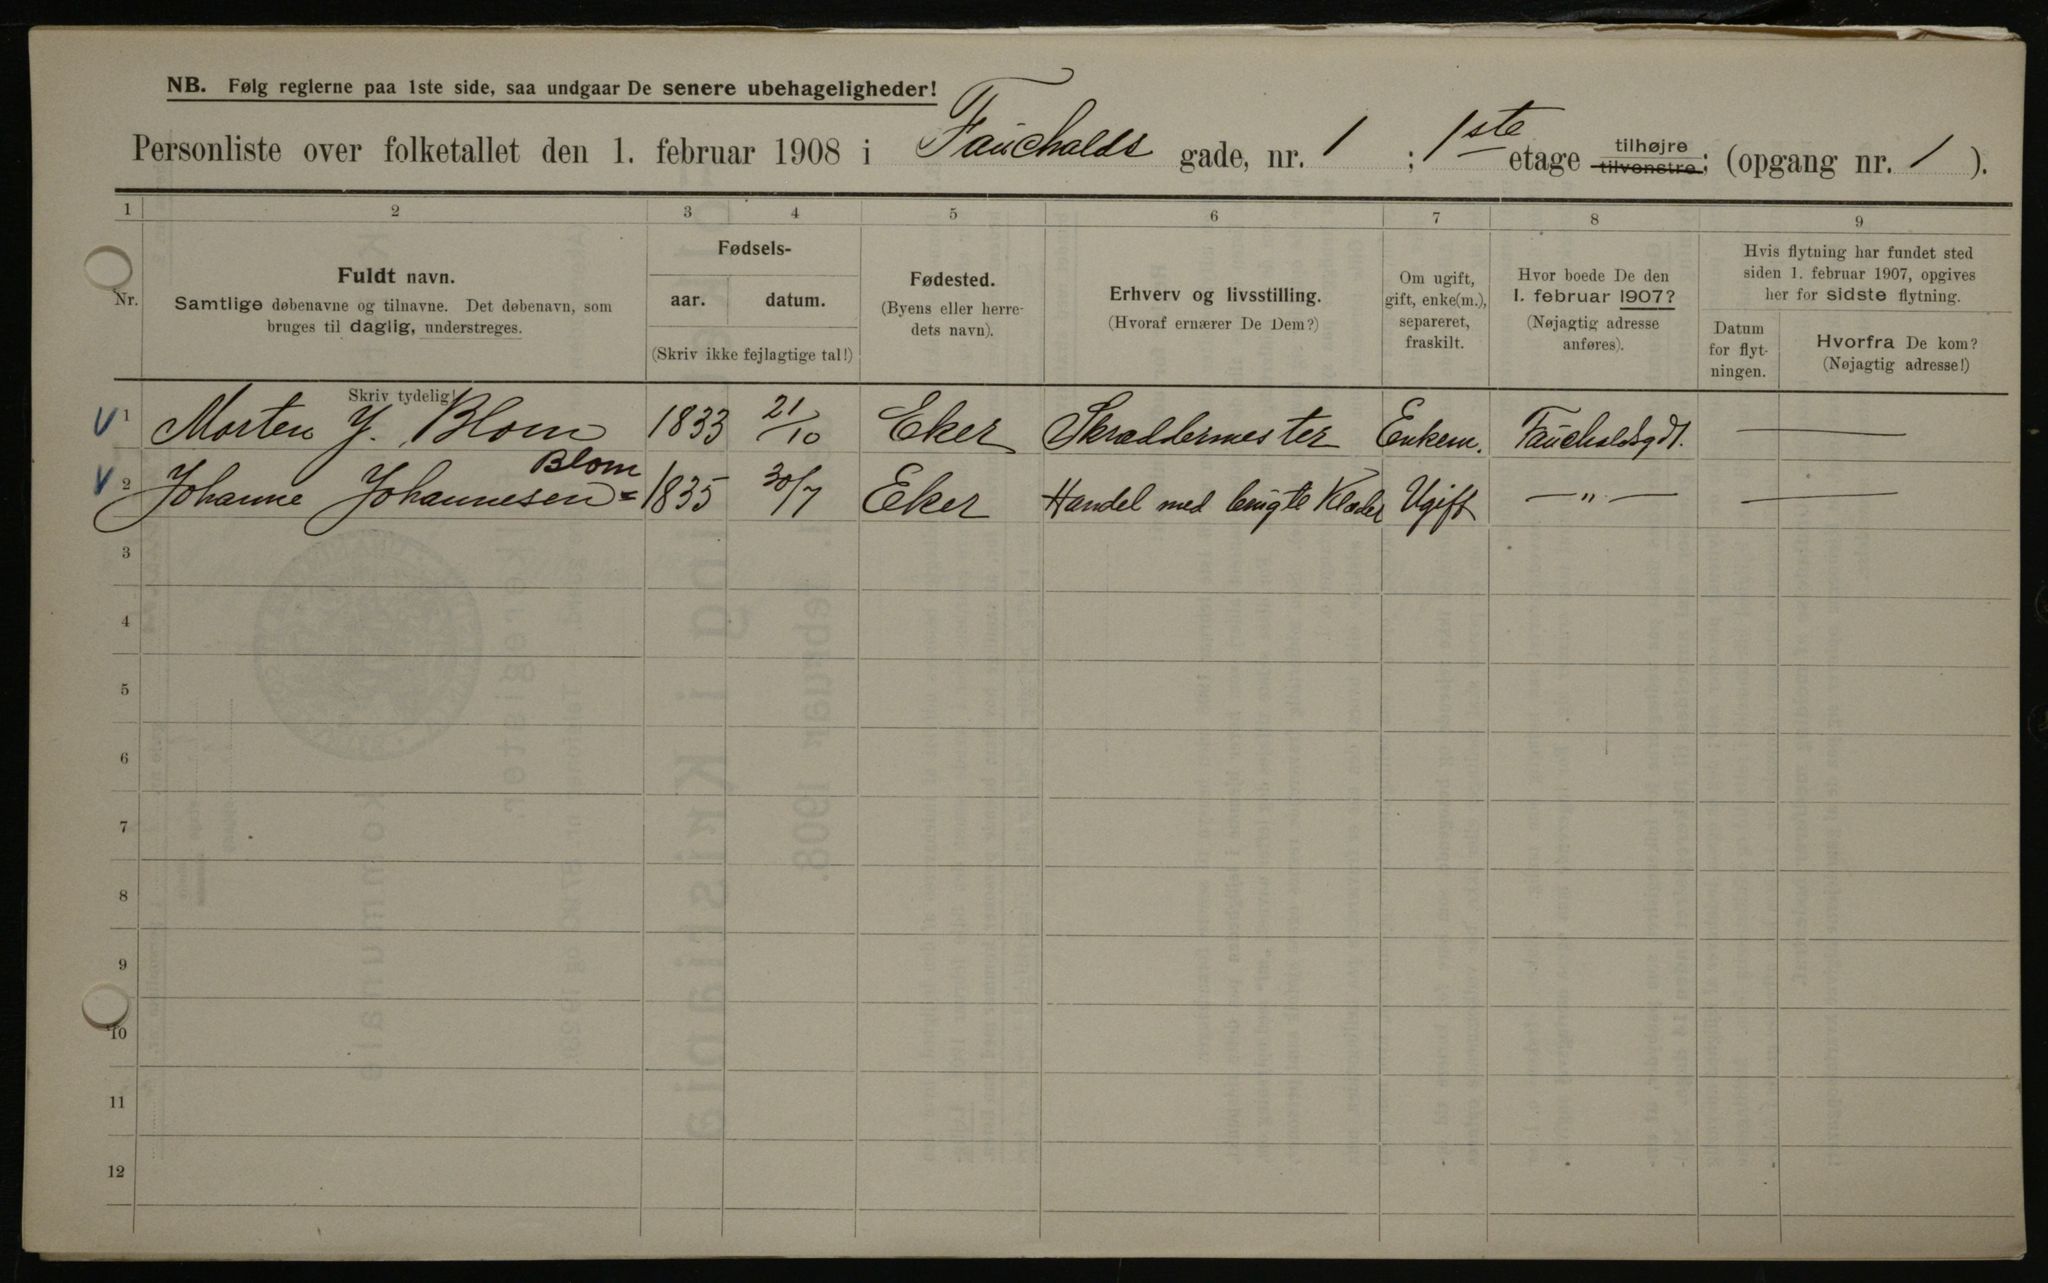 NB. Følg reglerne paa 1ste side, saa undgaar De senere ubehageligheder!
Personliste over folketallet den 1. februar 1908 i Fauchalds gade, nr. 1 ; 1ste etage tilhøjre tilvenstre; (opgang nr. 1 ).
1 2 3 4 5 6 7 8 9
Nr.
Fuldt navn.
Samtlige døbenavne og tilnavne. Det døbenavn, som
bruges til daglig, understreges.
Skriv tydelig!
Fødsels-
aar. datum.
(Skriv ikke fejlagtige tal!)
Fødested.
(Byens eller herre-
dets navn).
Erhverv og livsstilling.
(Hvoraf ernærer De Dem?)
Om ugift,
gift, enke(m.),
separeret,
fraskilt.
Hvor boede De den
1. februar 1907?
(Nøjagtig adresse
anføres).
Hvis flytning har fundet sted
siden 1. februar 1907, opgives
her for sidste flytning.
Datum
for flyt-
ningen.
Hvorfra De kom?
(Nøjagtig adresse!)
1 Morten J. Blom 1833 21/10 Eker Skræddermester Enkem. Fauchaldsgd 1. —
Blom
2 Johanne Johannesen = 1835 30/7 Eker Handel med brugte Klæder Ugift —"— —
3
4
5
6
7
8
9
10
11
12